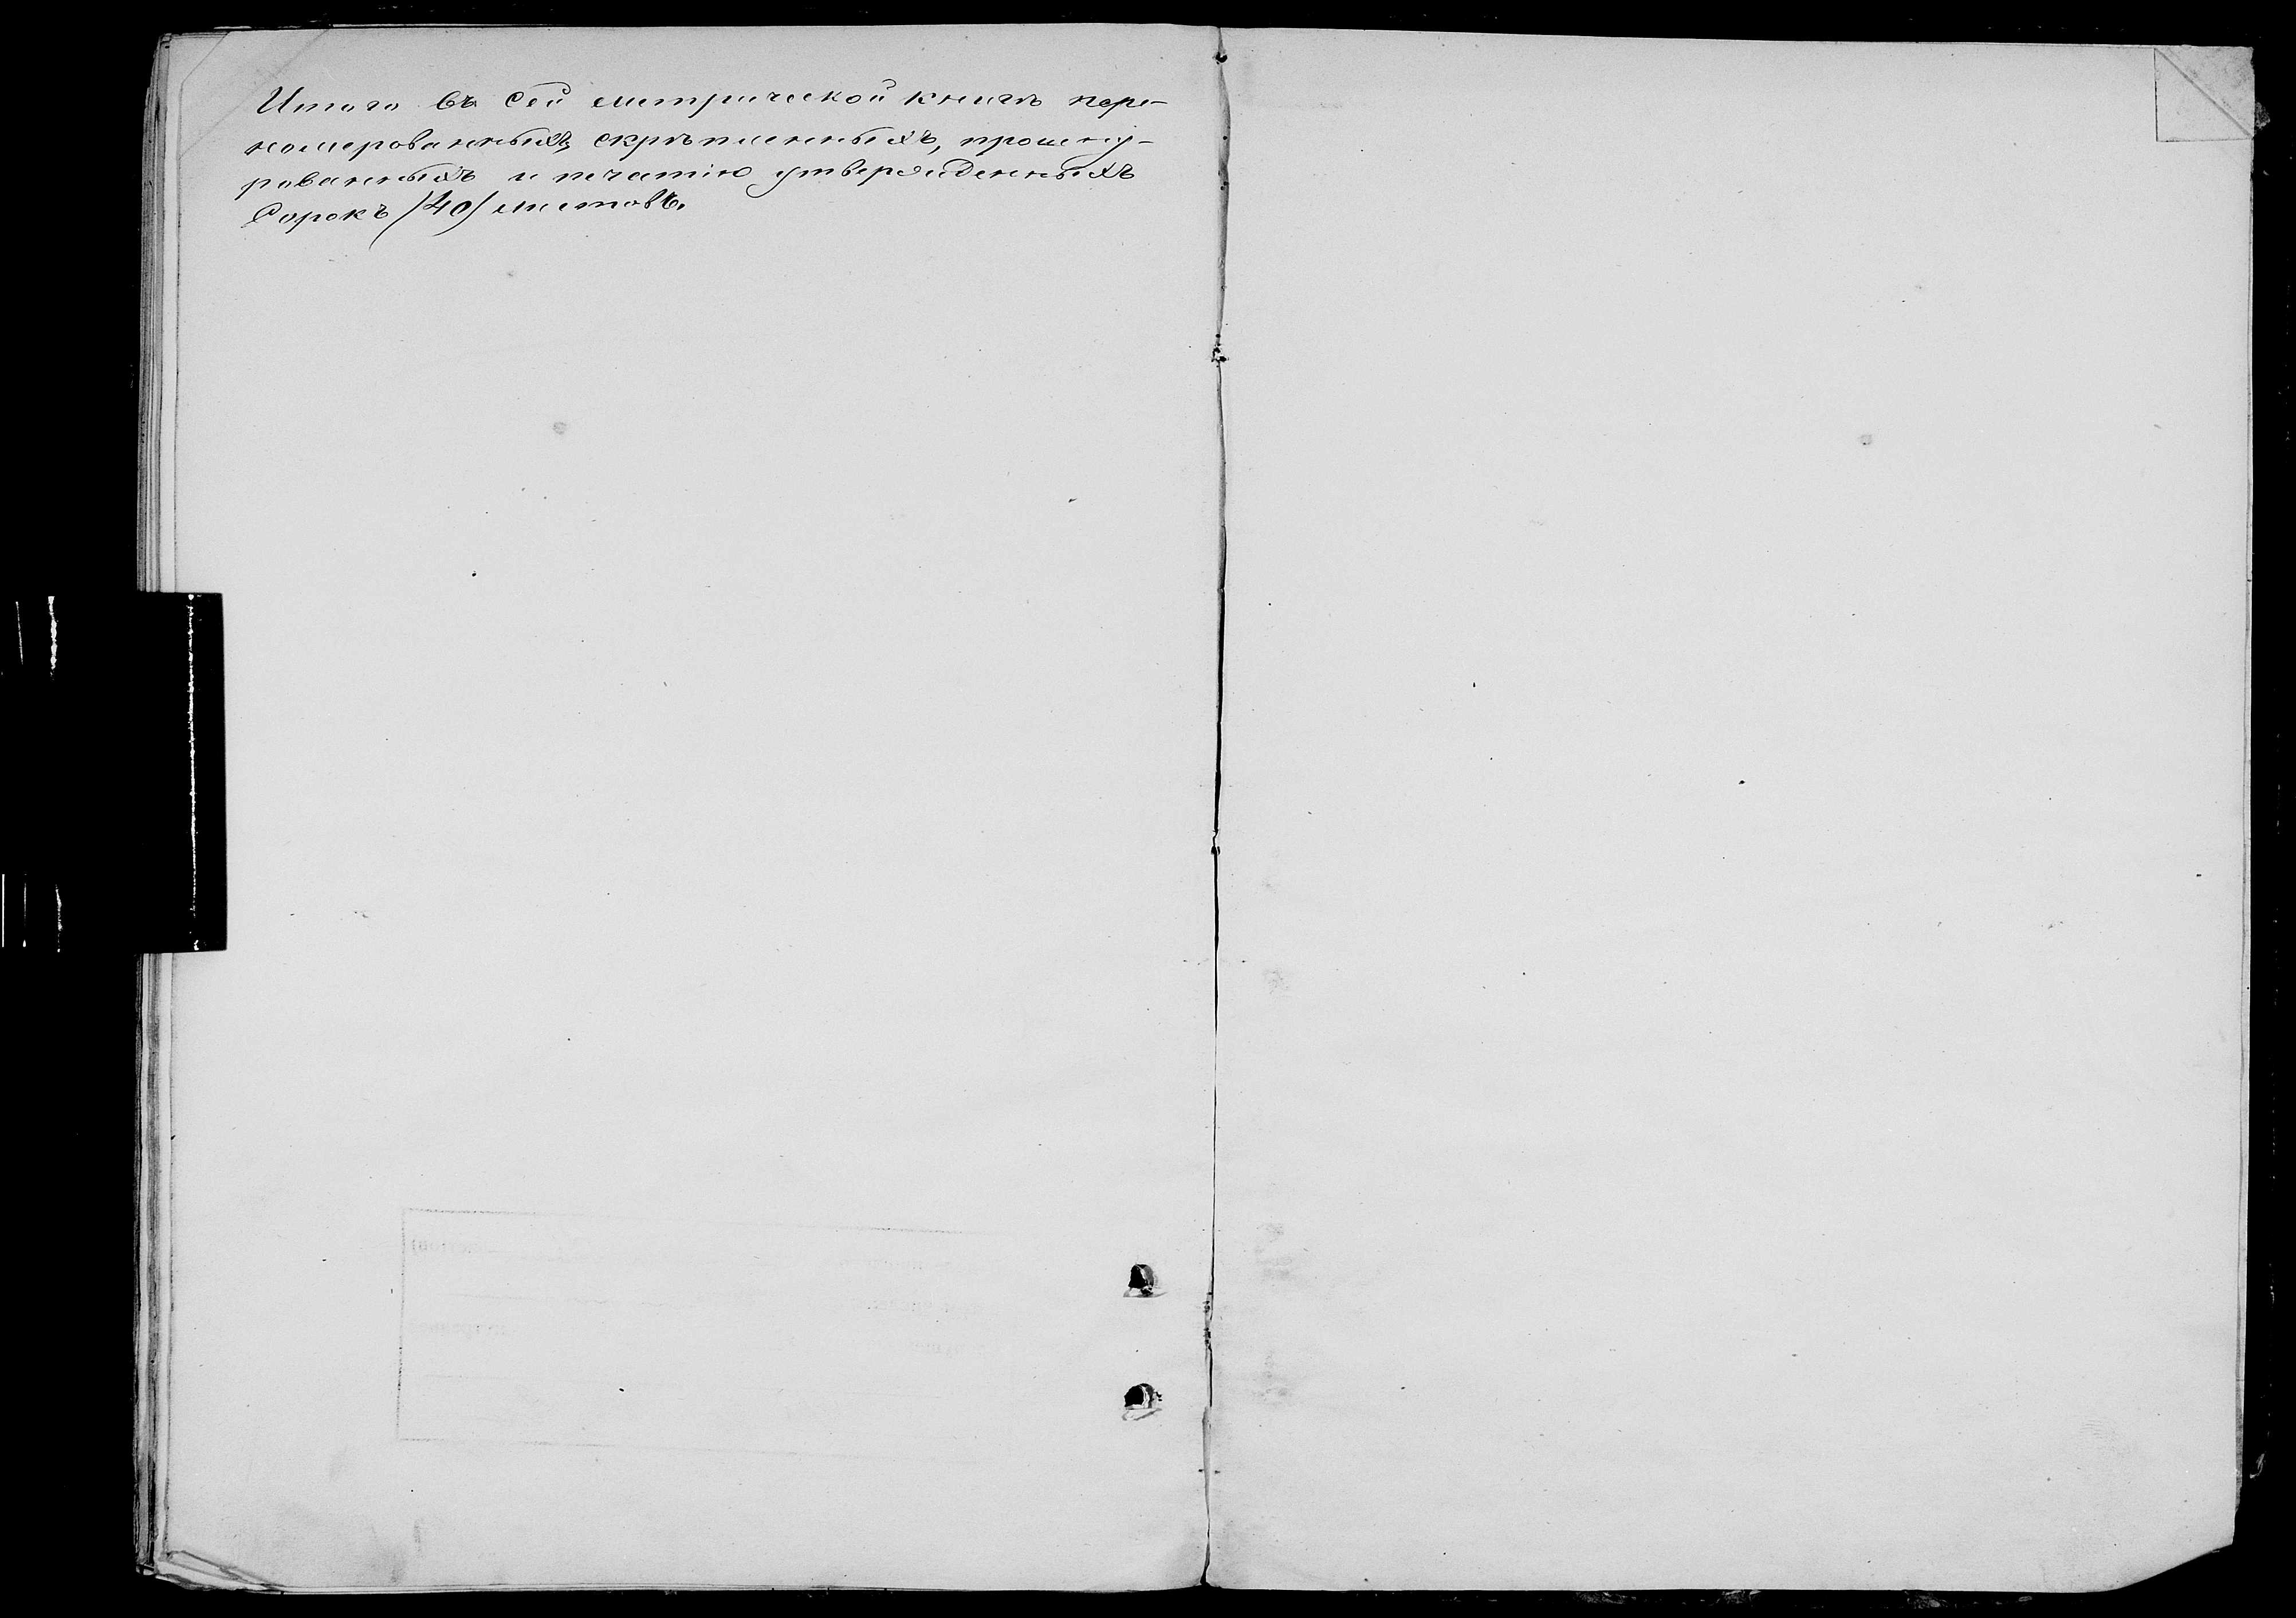 Итого въ сей метрической книгѣ пере-
номерованныхъ, скрѣпленныхъ, прошну-
рованныхъ и печатію утвержденныхъ
Сорокъ /40/ листовъ.